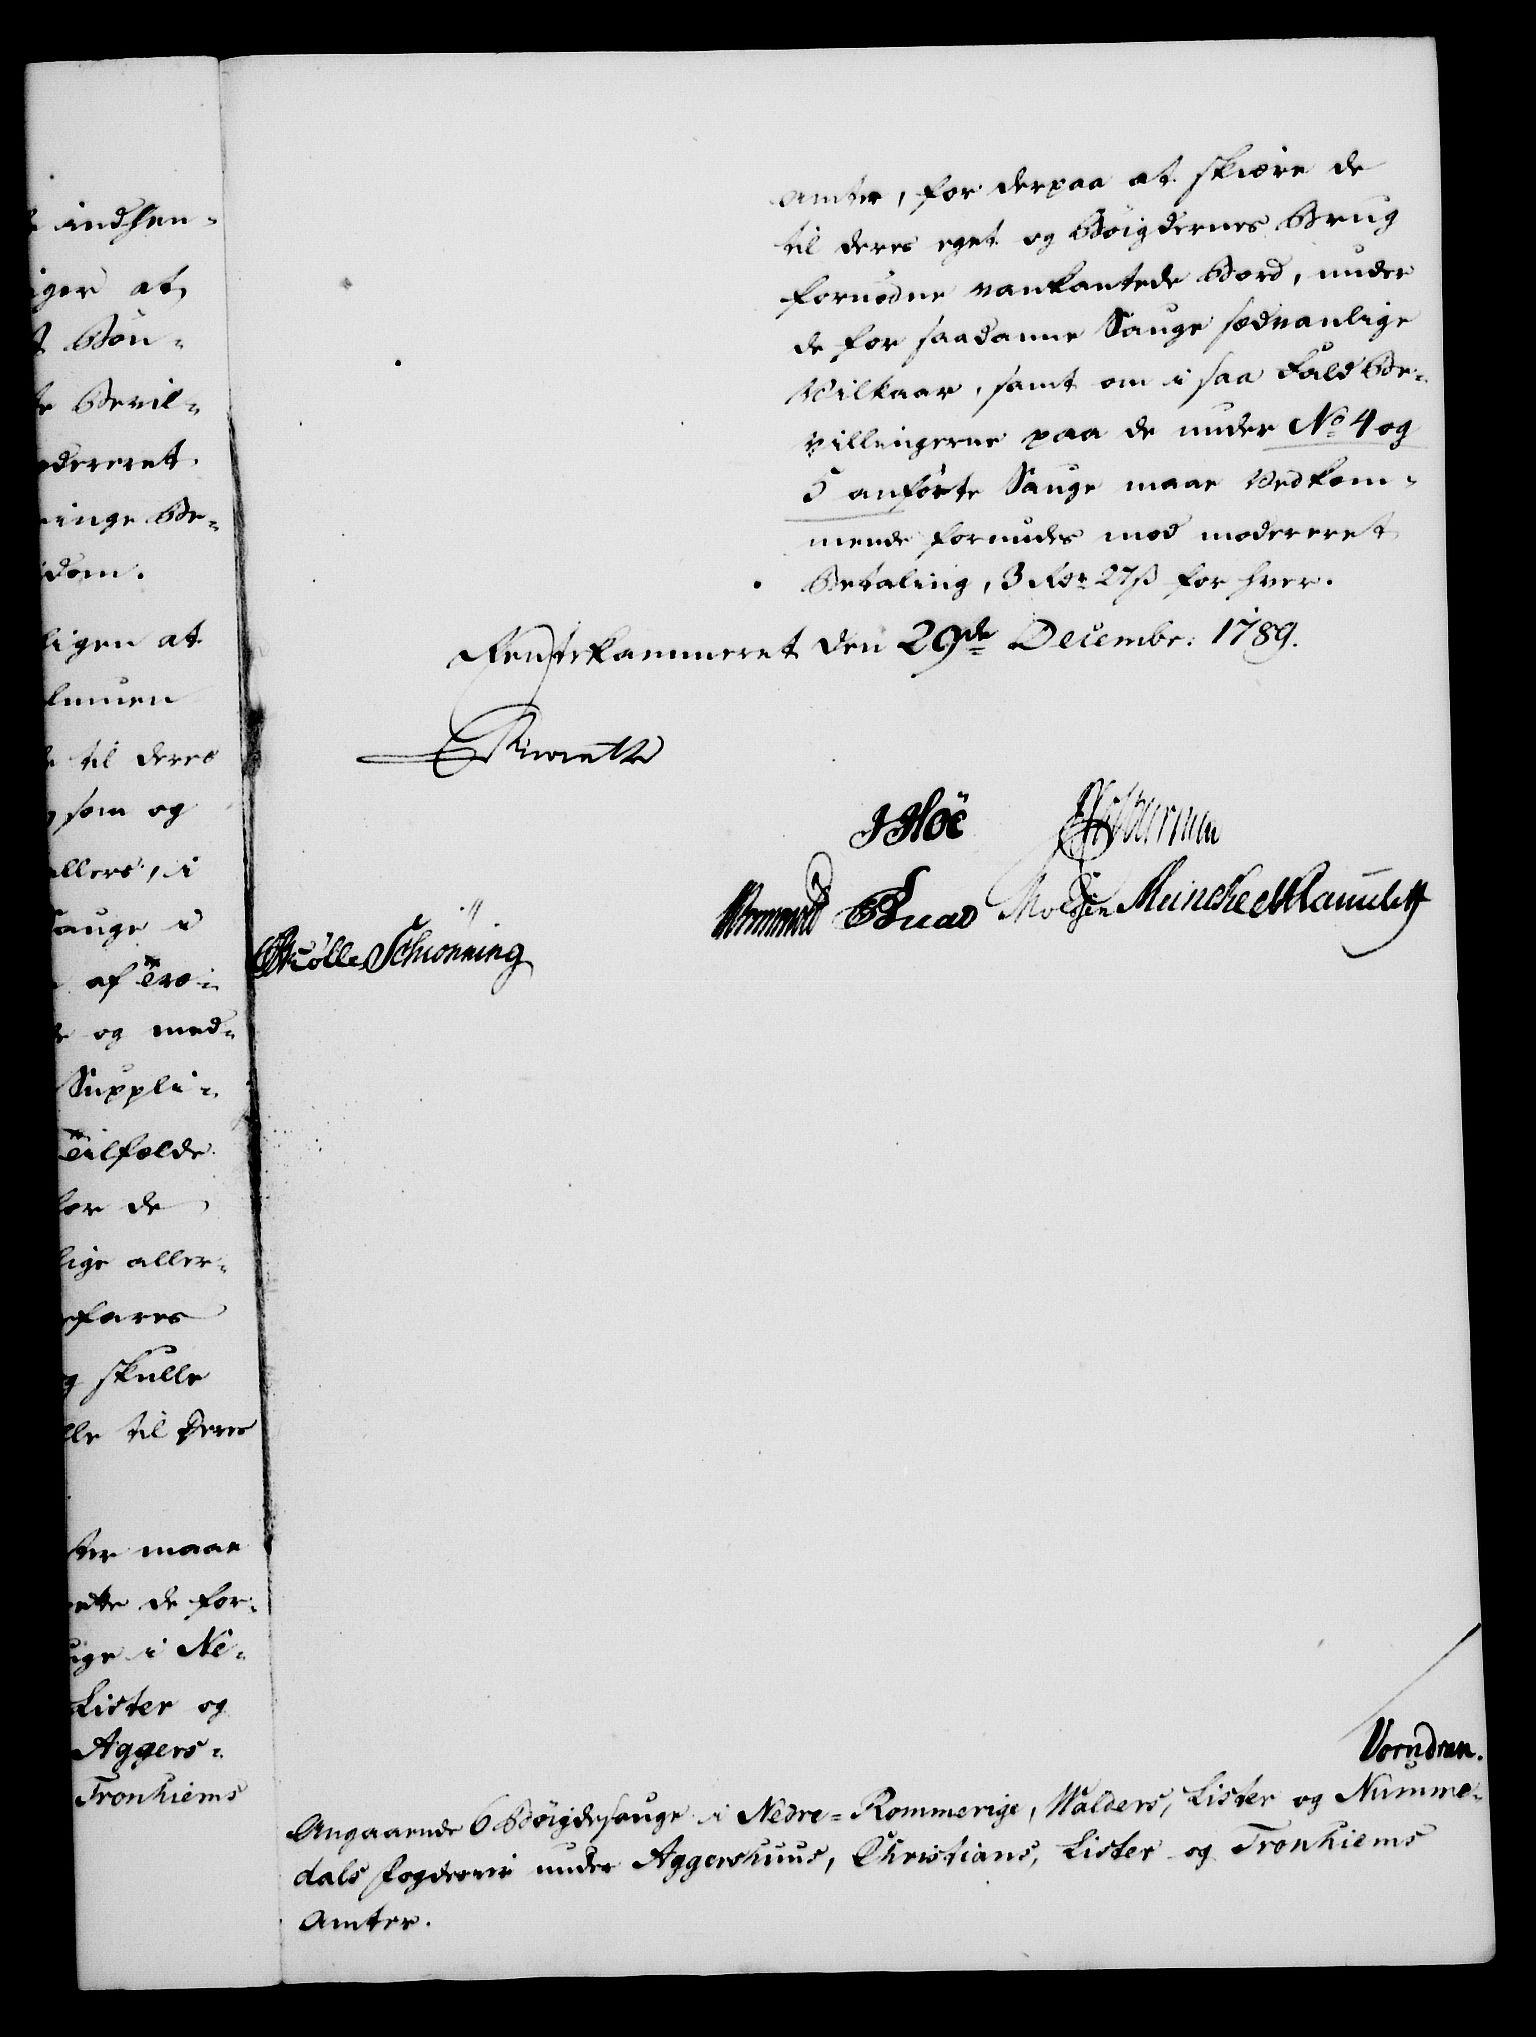 indsen-
iger at
t Bøn-
te Bevil-
odereret
ringe Be-
dom.
ligen at
lmuen
e til deres
som og
allers, i
Sauge i
af Træ-
de og med-
Suppli-
Tilfælde
for de
lige aller-
efares
g skulle
lle til deres
ster maae
ette de for-
uge i Ne-
Lister og
Aggers-
Tronhiems
Amter, for derpaa at skiære de
til deres eget og Bøigdernes Brug
fornødne vankantede Bord, under
de for saadanne Sauge sædvanlige
Vilkaar, samt om i saa Fald Be-
villingerne paa de under No 4 og
5 anførte Sauge maae Vedkom-
mende forundes mod modereret
Betaling, 3 Rdr 27 ß for hver.
Rentekammeret den 29de Decembr: 1789.
JHöe
Wormskiold Knad Moldgen Meincke MRamshart
Schiönning
Vorndran.
Angaaende 6 Bøigdesauge i Nedre-Rommerige, Walders, Lister og Numme-
dals Fogderier under Aggershuus, Christians, Lister og Tronhiems
Amter.